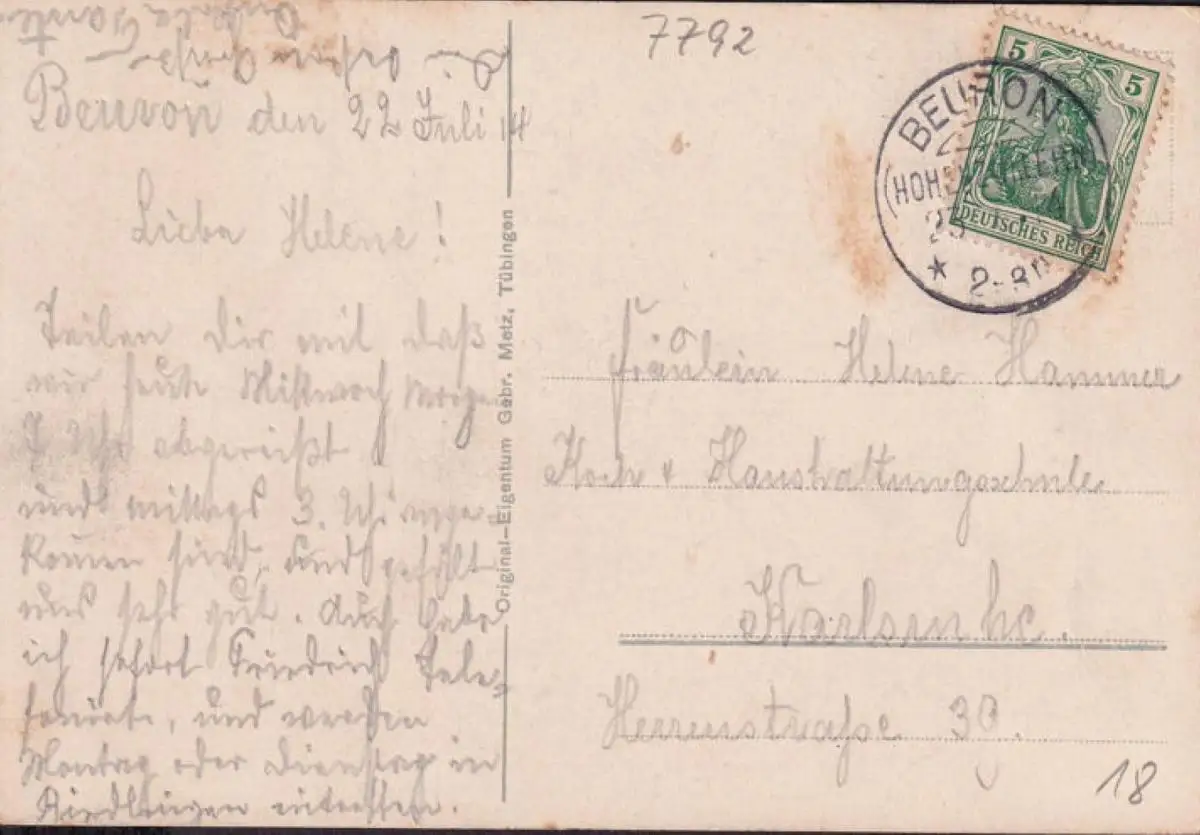 7792
Beuron den 22 Juli 14
Liebe Helene!
Teilen Dir mit daß
wir heute Mittwoch Morgen
7 Uhr abgereist
und mittags 3. Uhr ange-
kommen sind, und gefällt
uns sehr gut. Auch habe
ich sofort Friedrich Tele-
foniert, und werden
Montag oder Dienstag in
Riedlingen eintreffen.
Original-Eigentum Gebr. Metz, Tübingen
5 5
DEUTSCHES REICH
BEURON
2-3N
Fräulein Helene Hammer
Koch & Haushaltungsschule
Karlsruhe.
Herrenstraße 39.
18